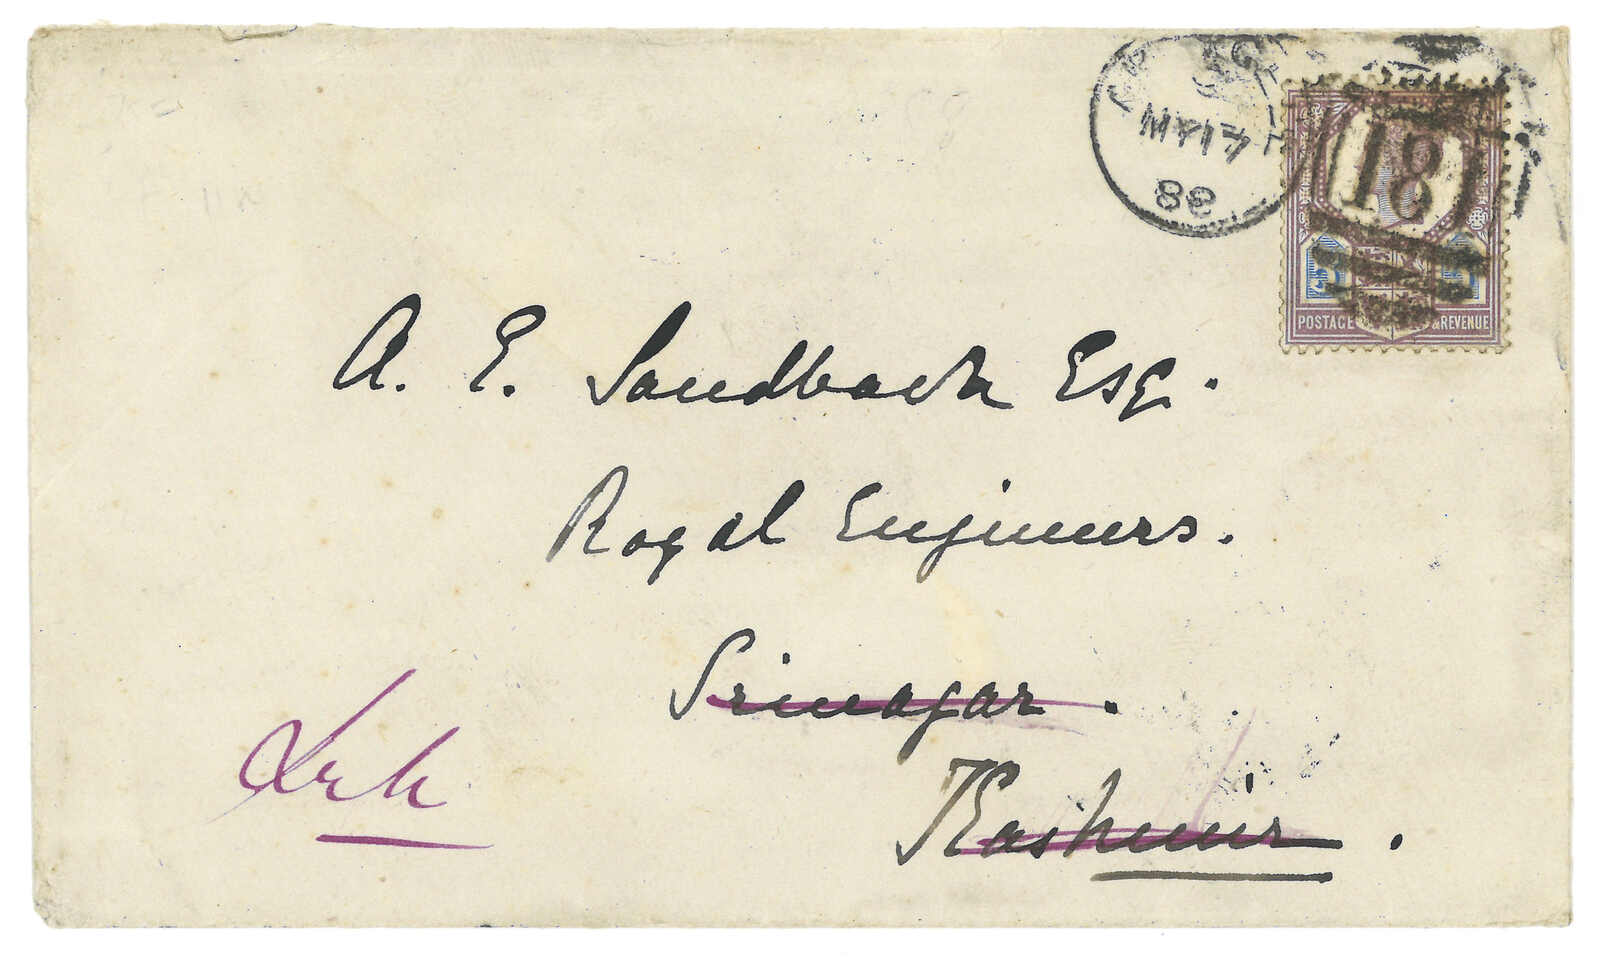 MY 14
88
181
5 5
POSTAGE & REVENUE
A. E. Sandbach Esq.
Royal Engineers.
Srinagar.
Kashmir.
Leh